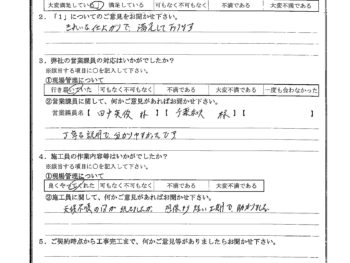 大変満足している 満足している 可も無く不可も無く 不満である 大変不満である
2．「1」についてのご意見をお聞かせ下さい。
きれいな仕上がりで 満足しております
3．弊社の営業課員の対応はいかがでしたか？
※該当する項目に○を記入して下さい。
①現場管理について
行き届いていた 可もなく不可もなく 不満である 大変不満である 一度も会わなかった
②営業課員に関して、何かご意見があればお聞かせ下さい。
営業課員名【 田中 様 】【 様 】【
丁寧な説明で 分かりやすかったです
4．施工員の作業内容等はいかがでしたか？
※該当する項目に○を記入して下さい。
①現場管理について
良くやってくれた 可もなく不可もなく 不満である 大変不満である
②施工員に関して、何かご意見があればお聞かせ下さい。
天候不順の
5．ご契約時点から工事完工まで、何かご意見等がありましたらお聞かせ下さい。